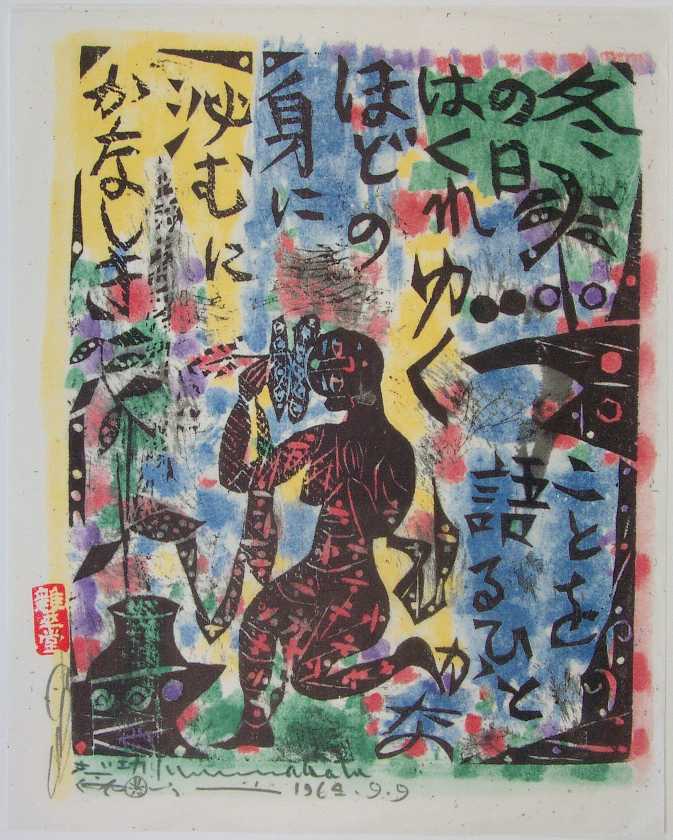 冬
の日
はくれゆく
ほどの
身に
泌むに
かなしき
ことを
語るひと
かな
志功 Munakata
1964.9.9